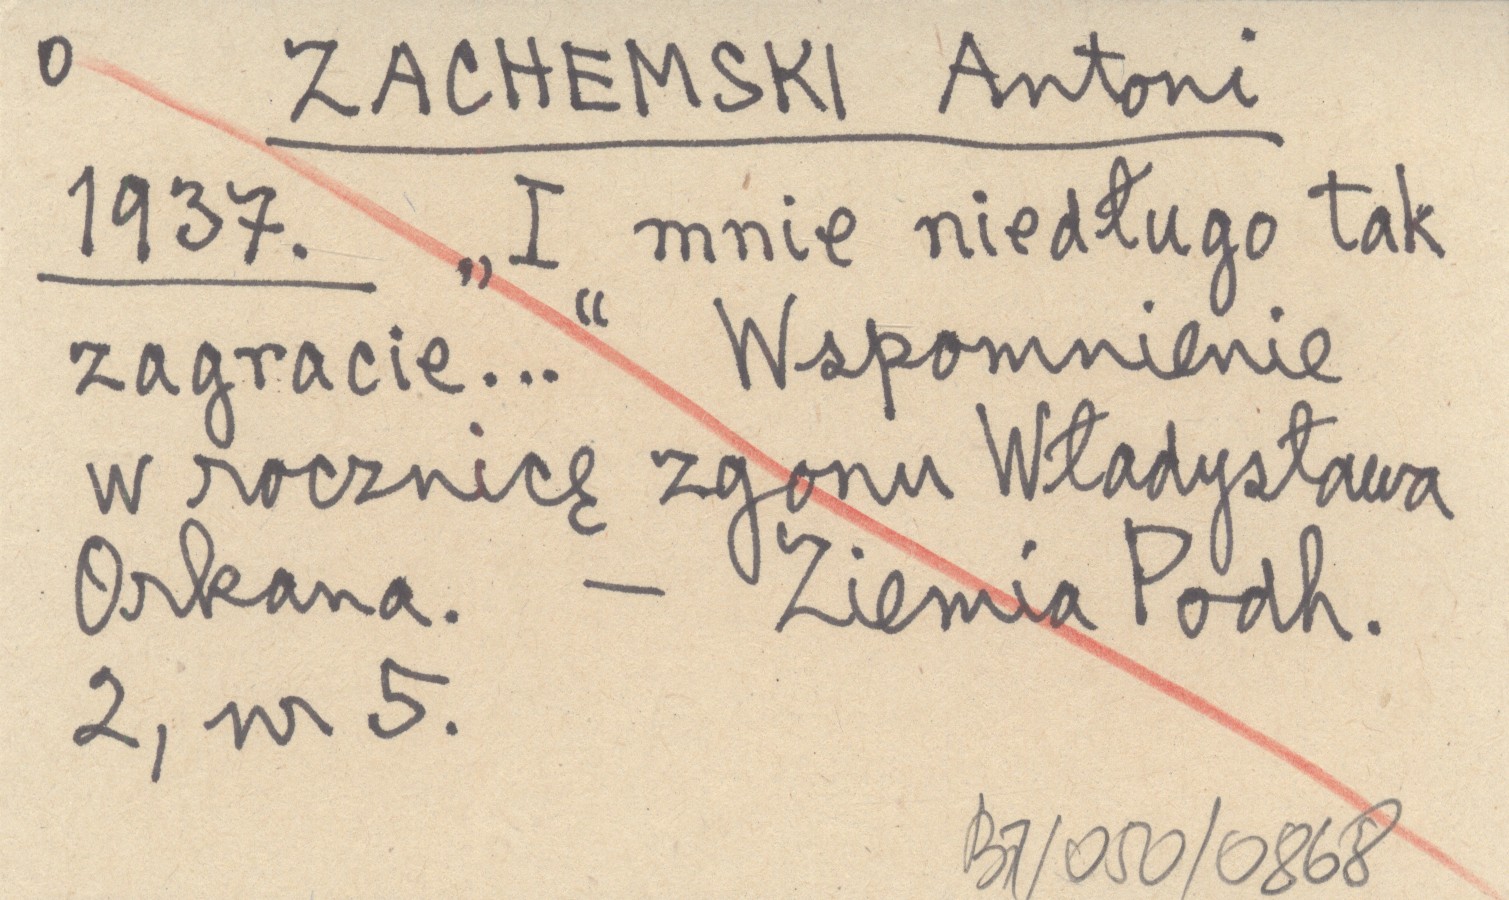 o ZACHEMSKI Antoni
1937. „I mnie niedługo tak
zagracie...“ Wspomnienie
w rocznicę zgonu Władysława
Orkana. – Ziemia Podh.
2, nr 5.
B7/050/0868